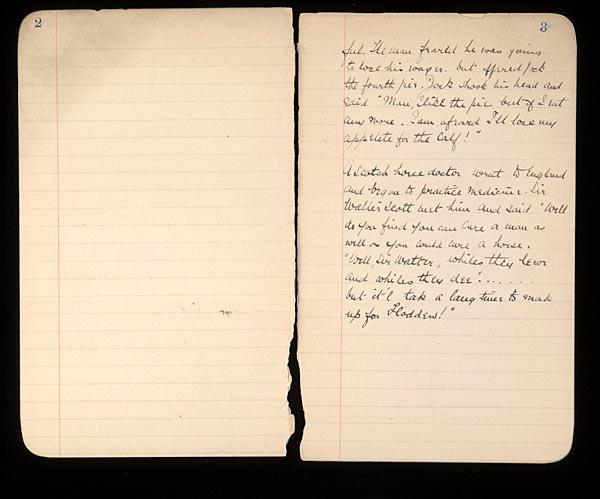 2
3
ful. The man feared he was going
to lose his wager. but offered Jock
the fourth pie. Jock shook his head and
said "Man, I like the pie but if I eat
any more. I am afraid I'll lose my
appetite for the Calf!"
A Scotch horse doctor went to England
and began to practice medicine. Sir
Walter Scott met him and said "Well
do you find you can cure a man as
well as you could cure a horse.
"Well, Sir Walter, whiles they leeve
and whiles they dee" . . . . . . .
but it'l take a lang time to mak
up for Flodden!"